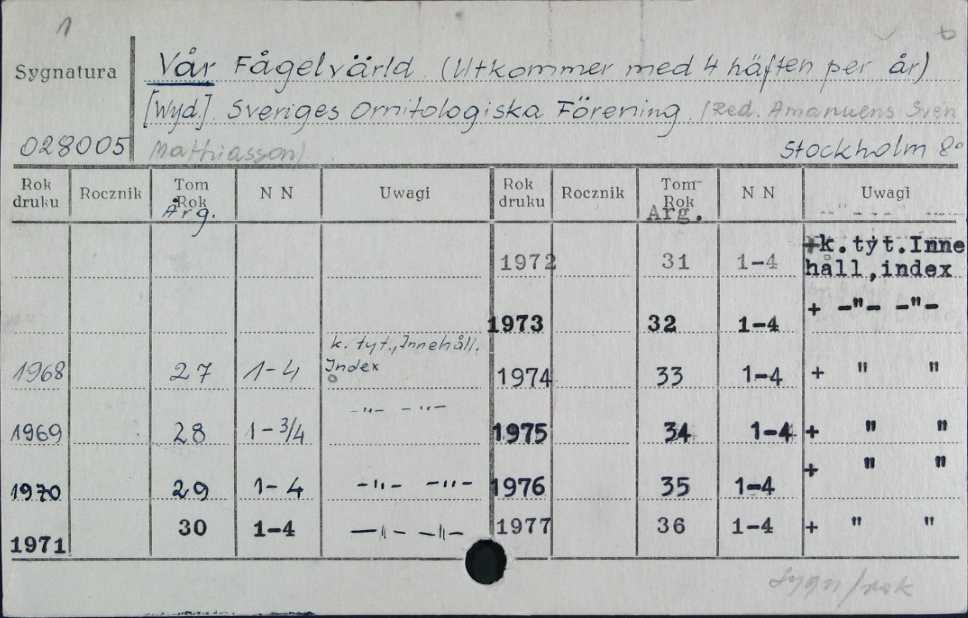 1
Sygnatura
Vår Fågelvärld (Utkommer med 4 häften per år)
[Wyd.] Sveriges Ornitologiska Förening. (Red. Amanuens Sven
028005 Mathiasson) Stockholm 8°
Rok druku Rocznik Tom Rok Årg. N N Uwagi Rok druku Rocznik Tom Rok Årg. N N Uwagi
1972 31 1-4 +k. tyt. Inne
håll, index
1973 32 1-4 + -"- -"-
k. tyt., Innehåll.
1968 27 1-4 Index 1974 33 1-4 + " "
1969 28 1-3/4 -"- -"- 1975 34 1-4 + " "
1970 29 1-4 -"- -"- 1976 35 1-4 + " "
1971 30 1-4 -"- -"- 1977 36 1-4 + " "
Sygn/rok